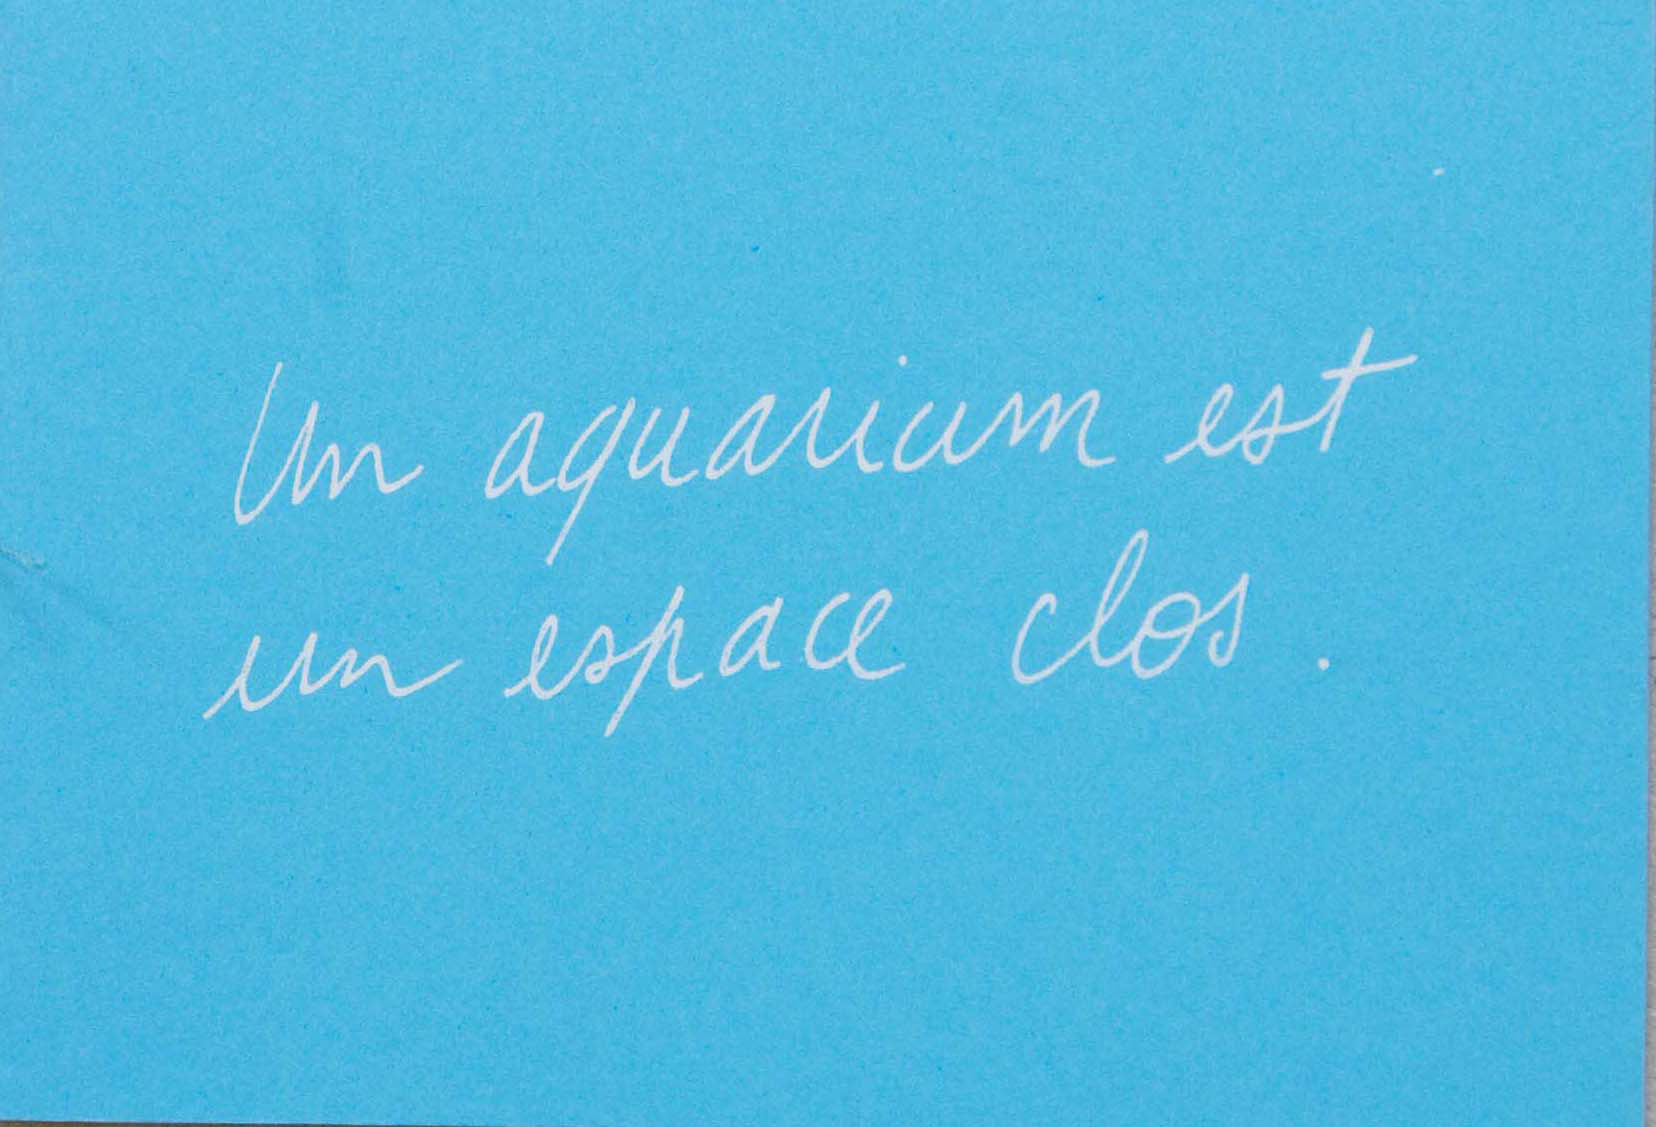 Un aquarium est
un espace clos.